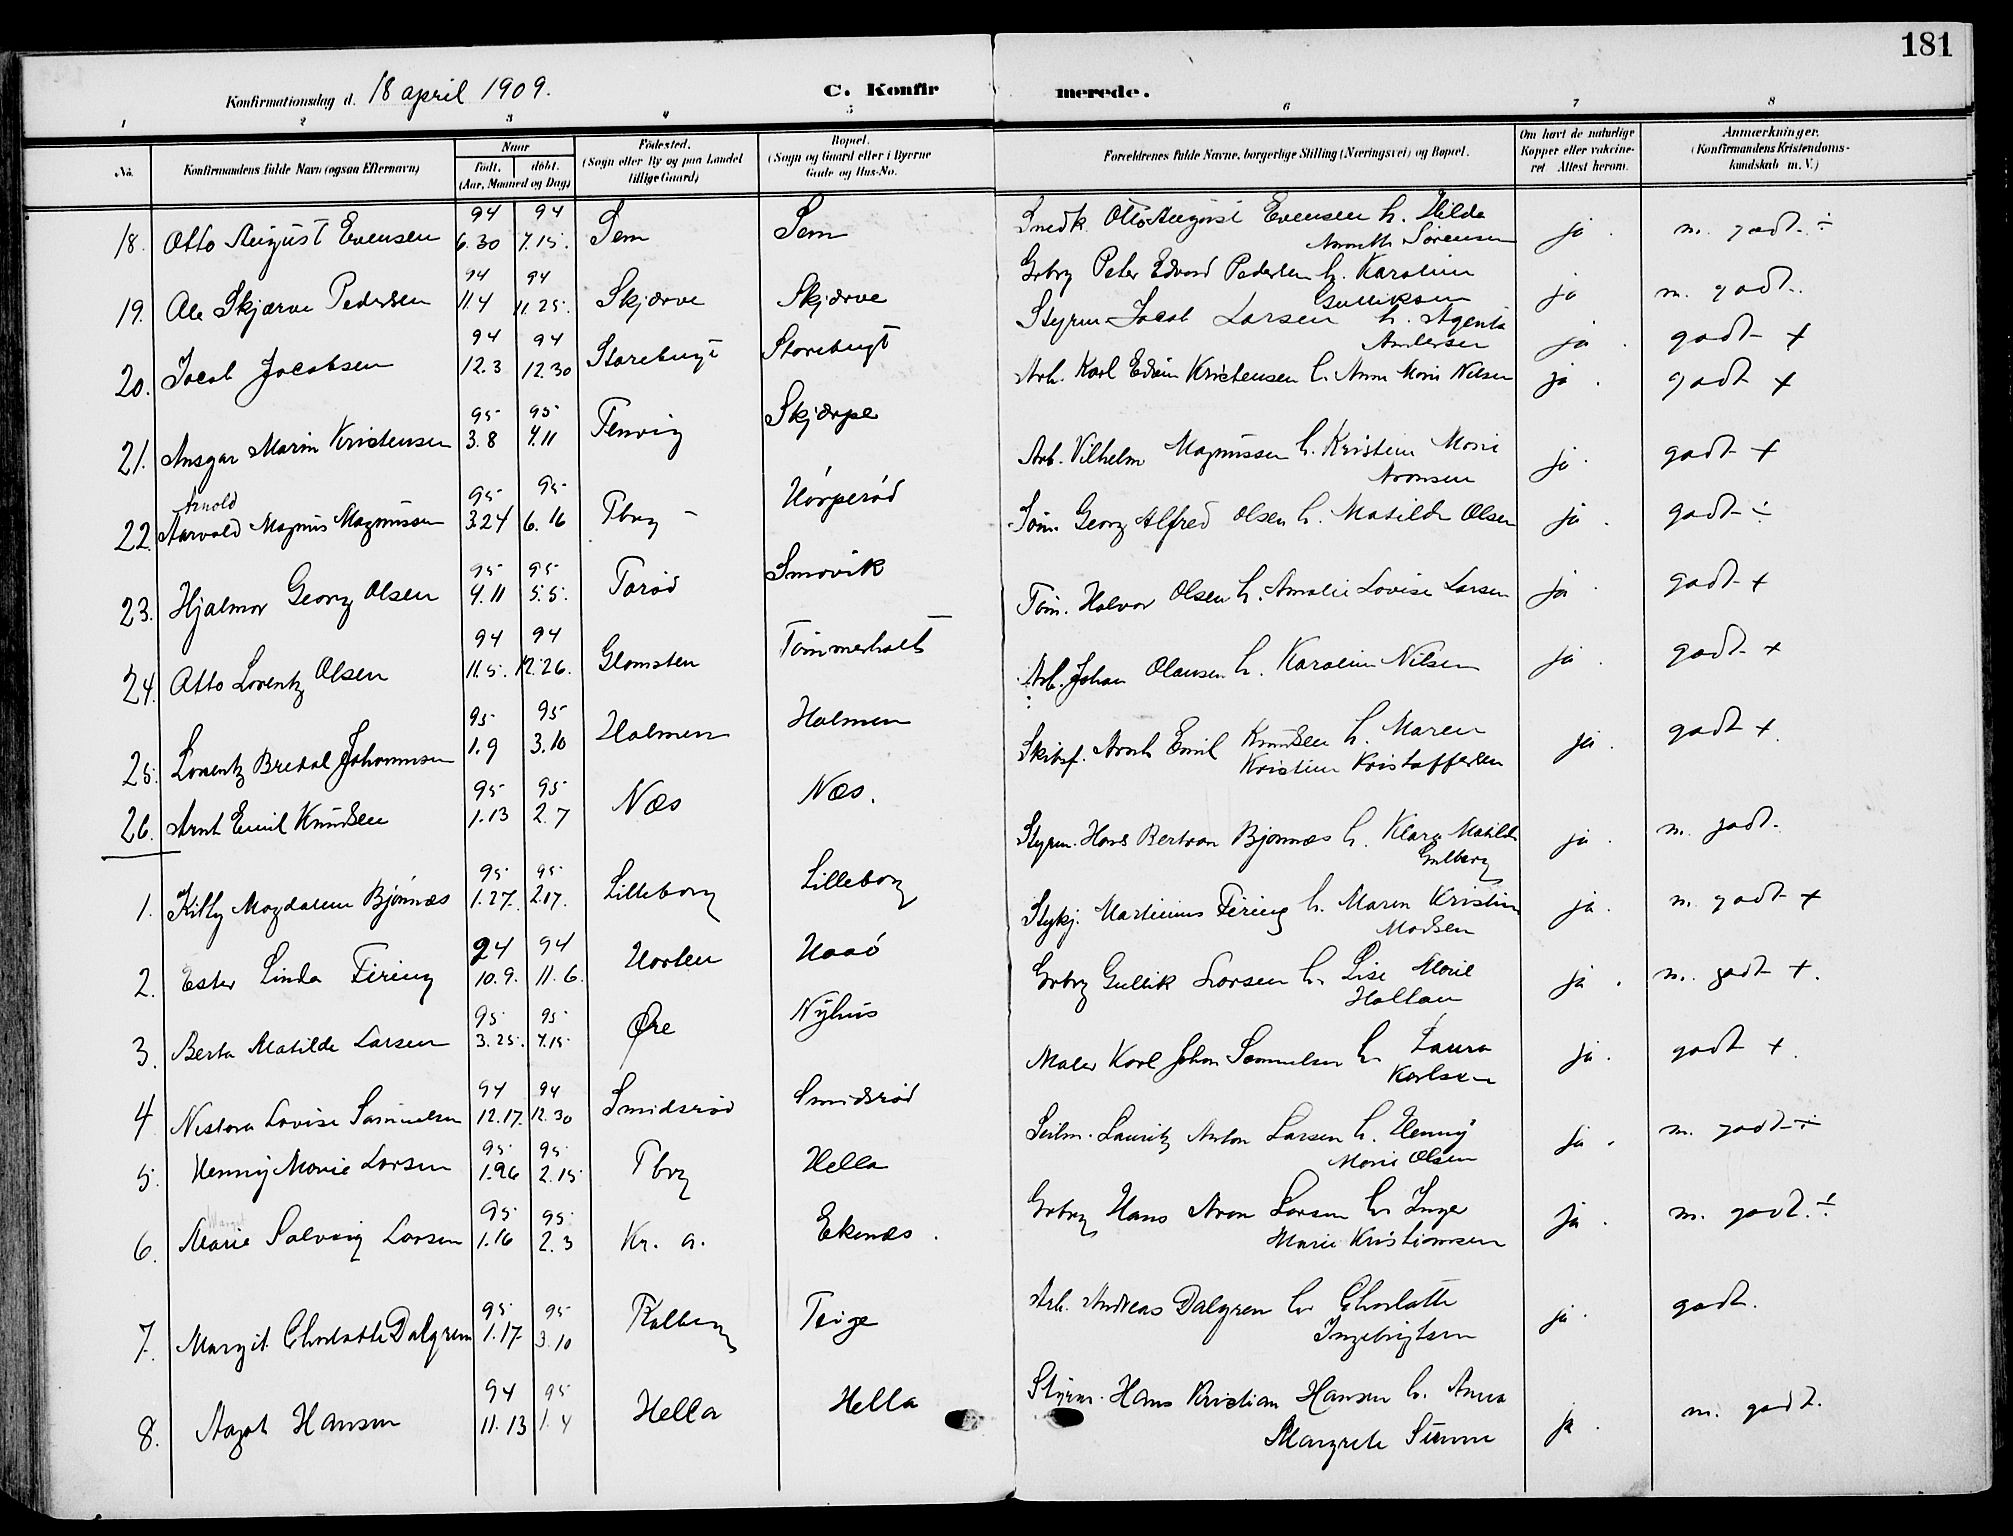 181
Konfirmationsdag d. 18 april 1909.
C. Konfirmerede.
1 2 3 4 5 6 7 8
No. Konfirmandens fulde Navn (ogsaa Efternavn) Naar født, døbt. (Aar, Maaned og Dag) Födested. (Sogn eller By og paa Landet tillige Gaard) Bopæl. (Sogn og Gaard eller i Byerne Gade og Hus-No. Forældrenes fulde Navne, borgerlige Stilling (Næringsvei) og Bopæl. Om havt de naturlige Kopper eller vakcineret Attest herom. Anmærkninger. (Konfirmandens Kristendomskundskab m. V.)
18. Otto August Evensen 94 6.30 94 7.15. Sem Sem Smedk Otto August Evensen h. Hilda Sörensen ja. m. godt ÷
19. Ole Skjærve Pedersen 94 11.4 94 11.25. Skjærve Skjærve Grbrg Peter Edvard Pedersen h. Karoline Gulliksen ja m. godt.
20. Jacob Jacobsen 94 12.3 94 12.30 Storebugt Storebugt Styrm. Jacob Larsen h. Agenta Andersen ja. godt +
21. Ansgar Marin Kristensen 95 3.8 95 4.11 Tenvig Skjærpe Arb. Karl Edvin Kristensen h. Anna Marie Nilsen ja. godt +
22. Aarvold Arnold Magnus Magnussen 95 3.24 95 6.16 Tbrg Hörperöd Arb. Vilhelm Magnussen h. Kristine Marie Aronsen ja. godt +
23. Hjalmar Georg Olsen 95 4.11 95 5.5. Toröd Smövik Töm. Georg Alfred Olsen h. Matilde Olsen ja. godt ÷
24. Otto Lorentz Olsen 94 11.5. 94 12.26. Glomsten Tömmerholt Töm. Halvor Olsen h. Amalie Lovise Larsen ja. godt +
25. Lorentz Bredal Johannsen 95 1.9 95 3.10 Holmen Holmen Arb. Johan Olausen h. Karoline Nilsen ja. godt +
26. Arnt Emil Knudsen 95 1.13 95 2.7 Næs Næs. Skibsf. Arnt Emil Knudsen h. Maren Kristine Kristoffersen ja. godt +
1. Kitty Magdalene Bjönnæs 95 1.27. 95 2.17. Lilleborg Lilleborg Styrm. Hans Bertran Bjönnæs h. Klara Matilde Gulberg ja. m. godt.
2. Ester Linda Firing 94 10.9. 94 11.6. Horten Haaö Martinius Firing h. Maren Kristine Madsen ja. m. godt +
3. Berta Matilde Larsen 95 3.25. 95 4.15. Øre Nyhus Grbrg Gullik Larsen h. Lise Marie Hallan ja. m. godt +.
4 Nestora Lovise Samuelsen 94 12.17. 94 12.30 Smidsröd Smidsröd Maler Karl Johan Samuelsen h. Laura Karlsen ja. godt +.
5. Henny Marie Larsen 95 1.26 95 2.15 Tbrg Hella Seilm. Lauritz Anton Larsen h. Henny Marie Olsen ja. m. godt ÷
6. Marie Solveig Larsen 95 1.16 95 2.3 Kr. a. Ekenæs. Grbrg Hans Aron Larsen h. Inger Marie Kristiansen ja. m. godt. ÷
7. Margit Charlotte Dalgren 95 1.17 95 3.10 Teige Arb. Andreas Dalgren h. Charlotte Ingebrigtsen ja. godt.
8. Aagot Hansen 94 11.13 95 1.4 Hella Hella Styrm. Hans Kristian Hansen h. Anna Margrete ja. m. godt.